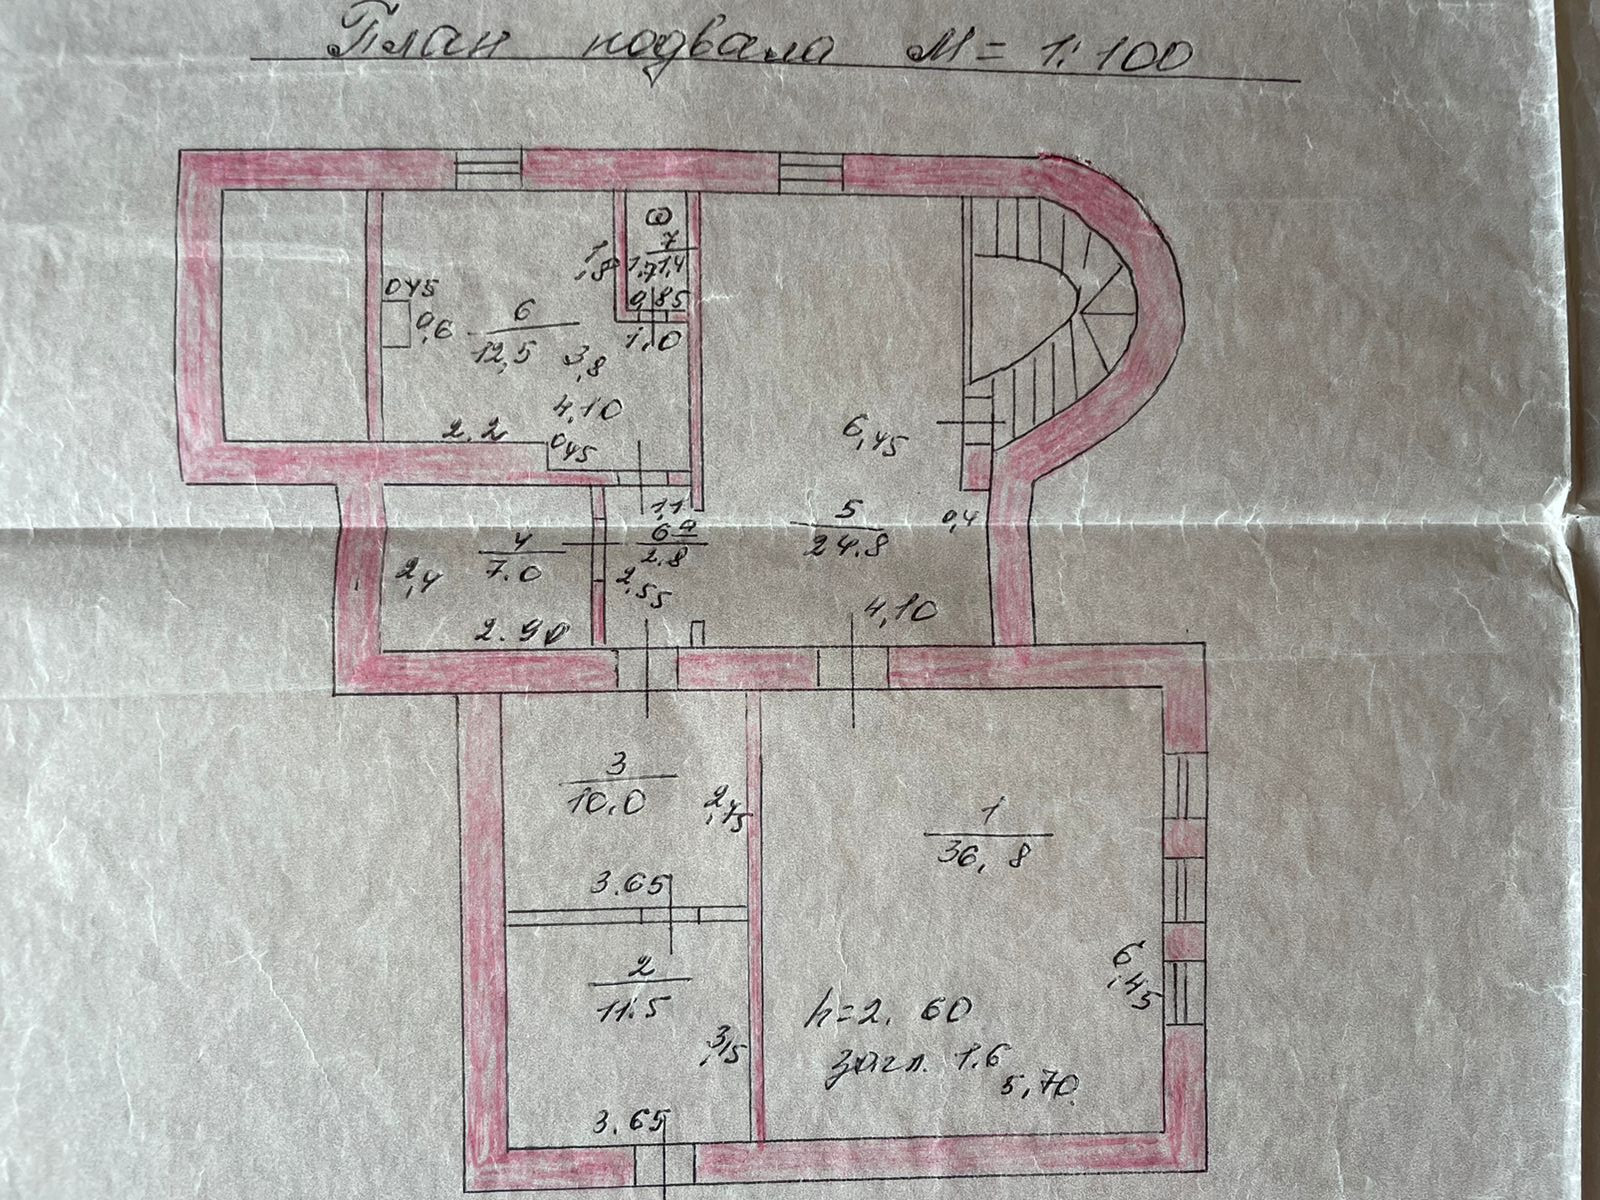 План подвала М = 1:100
7
1,8
1,7 1,4
0,45
0,85
0,6
6
12,5
1,0
3,8
4,10
2.2
0,45
6,45
1,1
5
24.8
0,4
4
7.0
6а
2.8
2,4
2,55
2.90
4,10
3
10,0
2,75
1
36,8
3.65
2
11.5
6,45
h=2.60
3,15
загл. 1.6
5,70
3.65